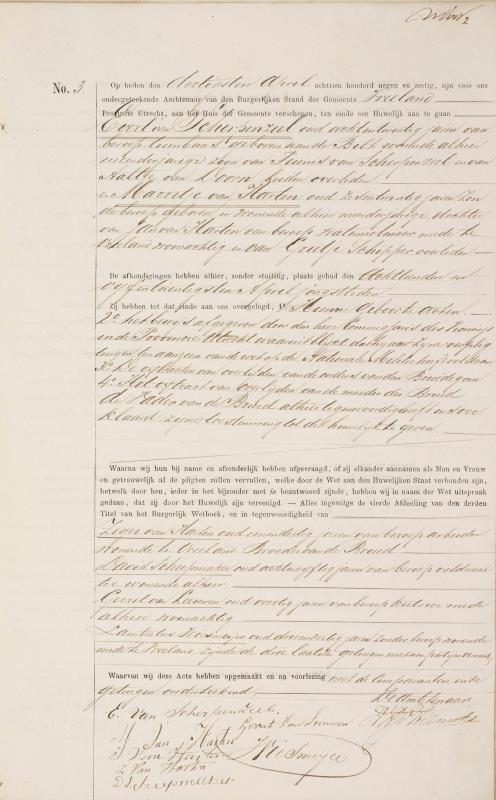 No. 3.
Op heden den dertigsten April achttien honderd negen en zestig, zijn voor ons
ondergeteekende Ambtenaar van den Burgerlijken Stand der Gemeente Vreeland
Provincie Utrecht, aan het Huis der Gemeente verschenen, ten einde een Huwelijk aan te gaan
Evert van Scherpenzeel oud achtentwintig jaren van
beroep geboren aan de Bilt wonende alhier
meerderjarige zoon van Teunis van Scherpenzeel en van
Aaltje van Doorn beiden overleden
en Marretje van Harten oud zesentwintig jaren zon
der beroep geboren en wonende alhier meerderjarige dochter
van Jan van Harten van beroep watermolenaar mede te
Vreeland woonachtig en van Grietje Schipper overleden
De afkondigingen hebben alhier, zonder stuiting, plaats gehad den Achttienden en
vijfentwintigsten April jongstleden
Zij hebben tot dat einde aan ons overgelegd, 1o. Hunne Geboorte acten.
2o het bewijs afgegeven door den heer Commissaris des Konings
in de Provincie Utrecht waaruit blijkt dat hij aan zijne verplig
tingen ten aanzien van de wet op de Nationale Militie heeft voldaan
3o De extracten van overlijden van de ouders van den Bruidegom
4o Het extract van overlijden van de moeder der Bruid
de Vader van de Bruid alhier tegenwoordig heeft ons ver
klaard zijne toestemming tot dit huwelijk te geven
Waarna wij hun bij name en afzonderlijk hebben afgevraagd, of zij elkander aannemen als Man en Vrouw
en getrouwelijk al de pligten zullen vervullen, welke door de Wet aan den Huwelijken Staat verbonden zijn,
hetwelk door hen, ieder in het bijzonder met ja beantwoord zijnde, hebben wij in naam der Wet uitspraak
gedaan, dat zij door het Huwelijk zijn vereenigd. — Alles ingevolge de vierde Afdeeling van den derden
Titel van het Burgerlijk Wetboek, en in tegenwoordigheid van
Zeger van Harten oud eenendertig jaren van beroep arbeider
wonende te Vreeland Broeder van de Bruid
David Scheepmaker oud achtenvijftig jaren van beroep veldwach
ter wonende alhier
Gerrit van Leeuwen oud veertig jaren van beroep mede
alhier woonachtig
Lambertus Wiesmeijer oud drieendertig jaren zonder beroep wonende
mede te Vreeland zijnde de drie laatste getuigen
Waarvan wij deze Acte hebben opgemaakt en na voorlezing met de Comparanten en de
getuigen onderteekend
De Ambtenaar
E. Van Scherpenzeel
Gerrit Van Leeuwen
M Van Harten
J Van Harten
Wiesmeijer
Z Van Harten
D Scheepmaker